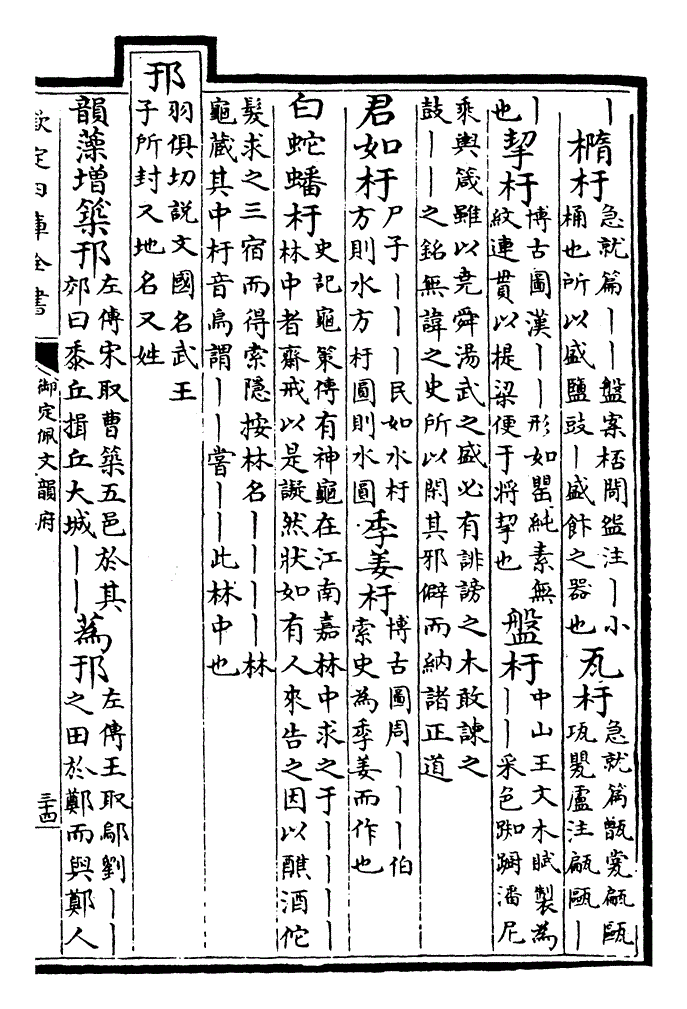 ｜橢杅急就篇｜｜盤案桮閜盌注｜小桶也所以盛鹽豉｜盛飰之器也瓦杅急就篇甑甍甂甌瓨甖盧注甂甌｜
｜也挈杅博古圖漢｜｜形如罌純素無紋連貫以提梁便于將挈也盤杅中山王文木賦製為｜｜采色踟躕潘尼
乘輿箴雖以堯舜湯武之盛必有誹謗之木敢諫之鼓｜｜之銘無諱之史所以閑其邪僻而納諸正道
君如杅尸子｜｜｜民如水杅方則水方杅圓則水圓季姜杅博古圖周｜｜｜伯索史為季姜而作也
白蛇蟠杅史記龜策傳有神龜在江南嘉林中求之于｜｜｜｜林中者齋戒以是誐然狀如有人來告之因以醮酒佗
髮求之三宿而得索隱按林名｜｜｜｜林龜藏其中杅音烏謂｜｜嘗｜｜此林中也
邘羽俱切說文國名武王子所封又地名又姓
韻藻增築邘左傳宋取曹築五邑於其郊曰黍丘揖丘大城｜｜蒍邘左傳王取鄔劉｜｜之田於鄭而與鄭人
欽定四庫全書
御定佩文韻府
三十四